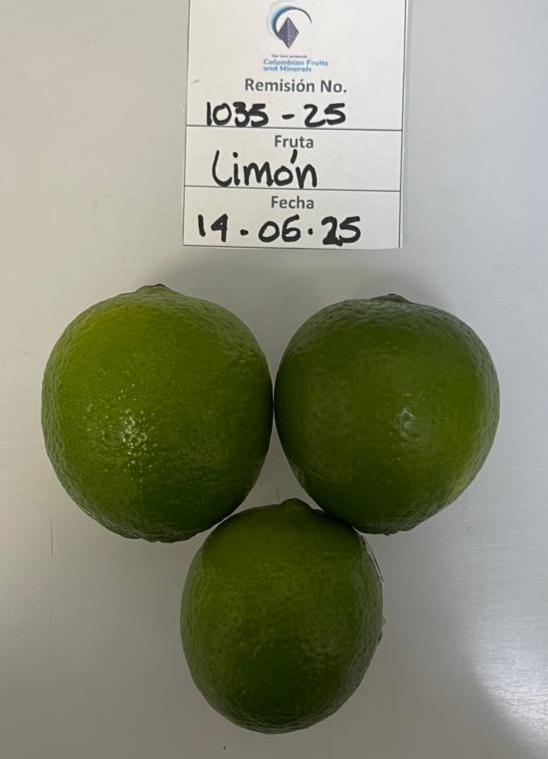 Colombian Fruits
and Minerals
Remisión No.
1035 - 25
Fruta
Limón
Fecha
14.06.25